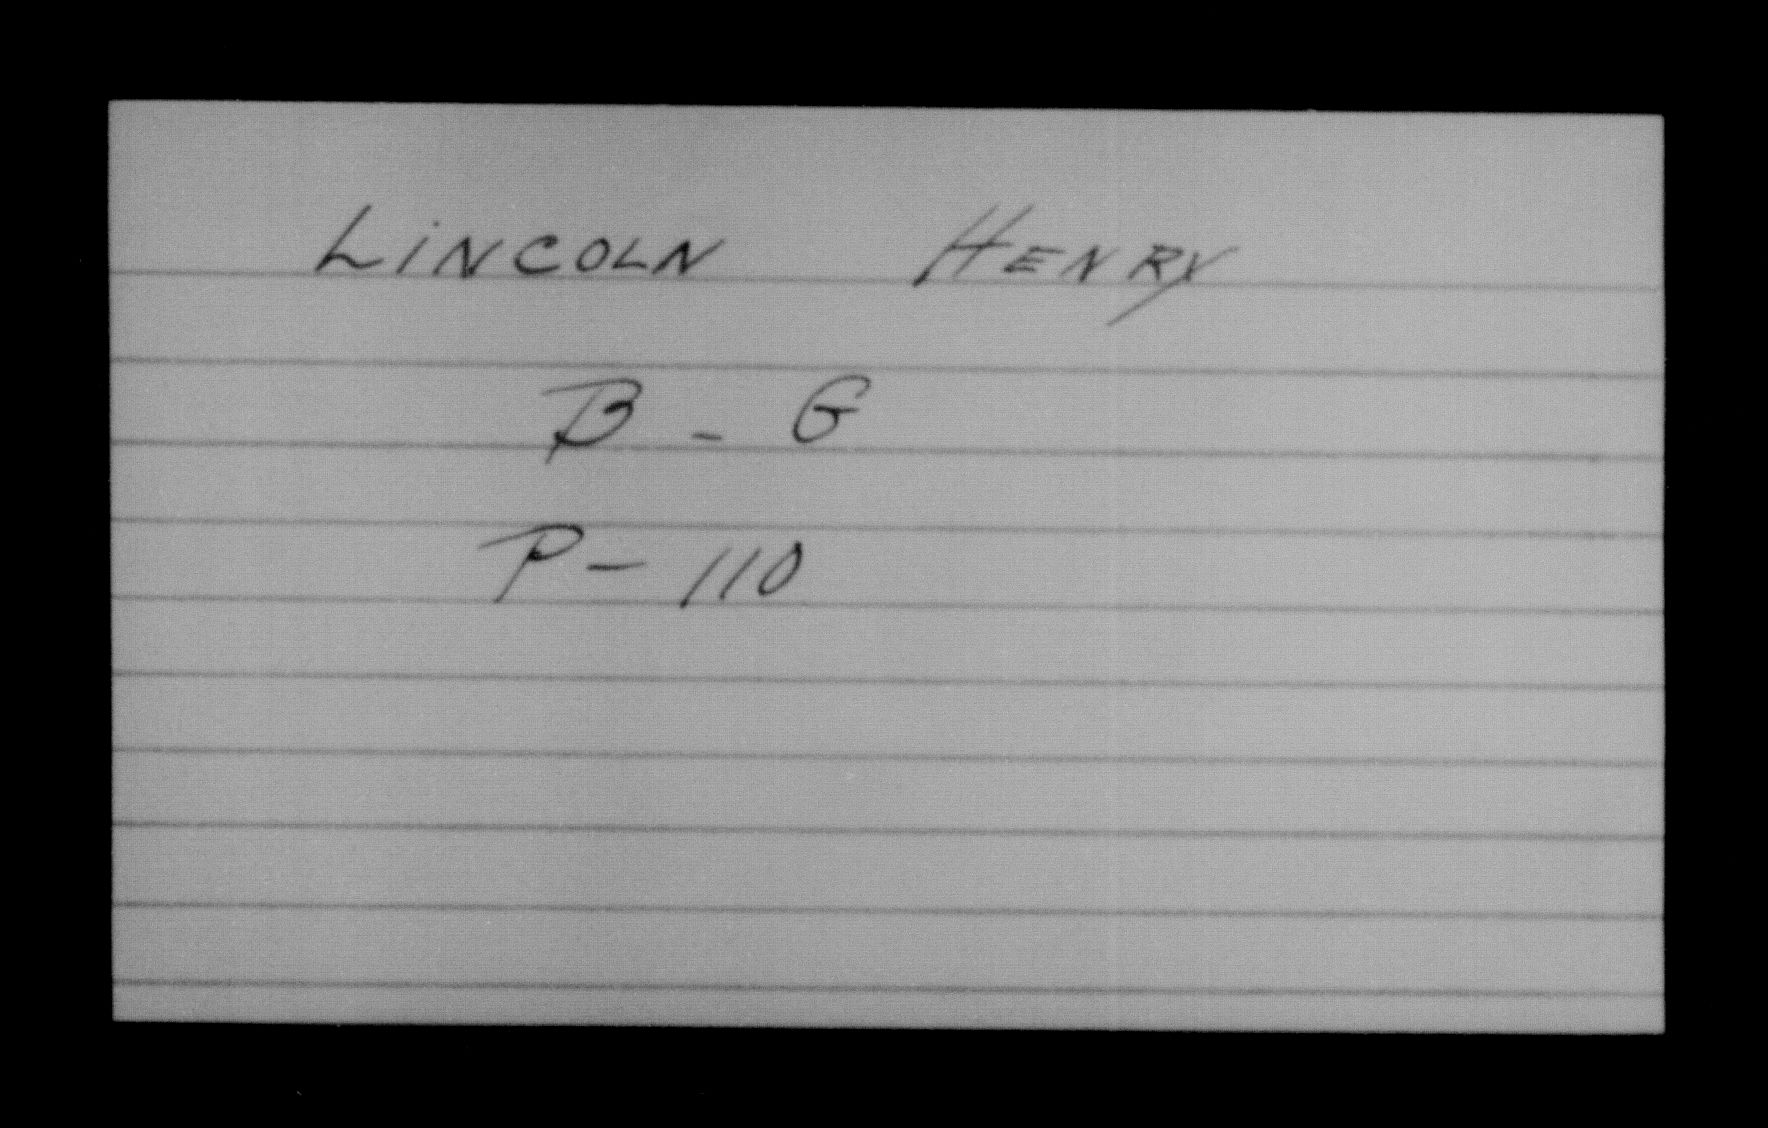 LiNCOLN HENRY
B - G
P - 110